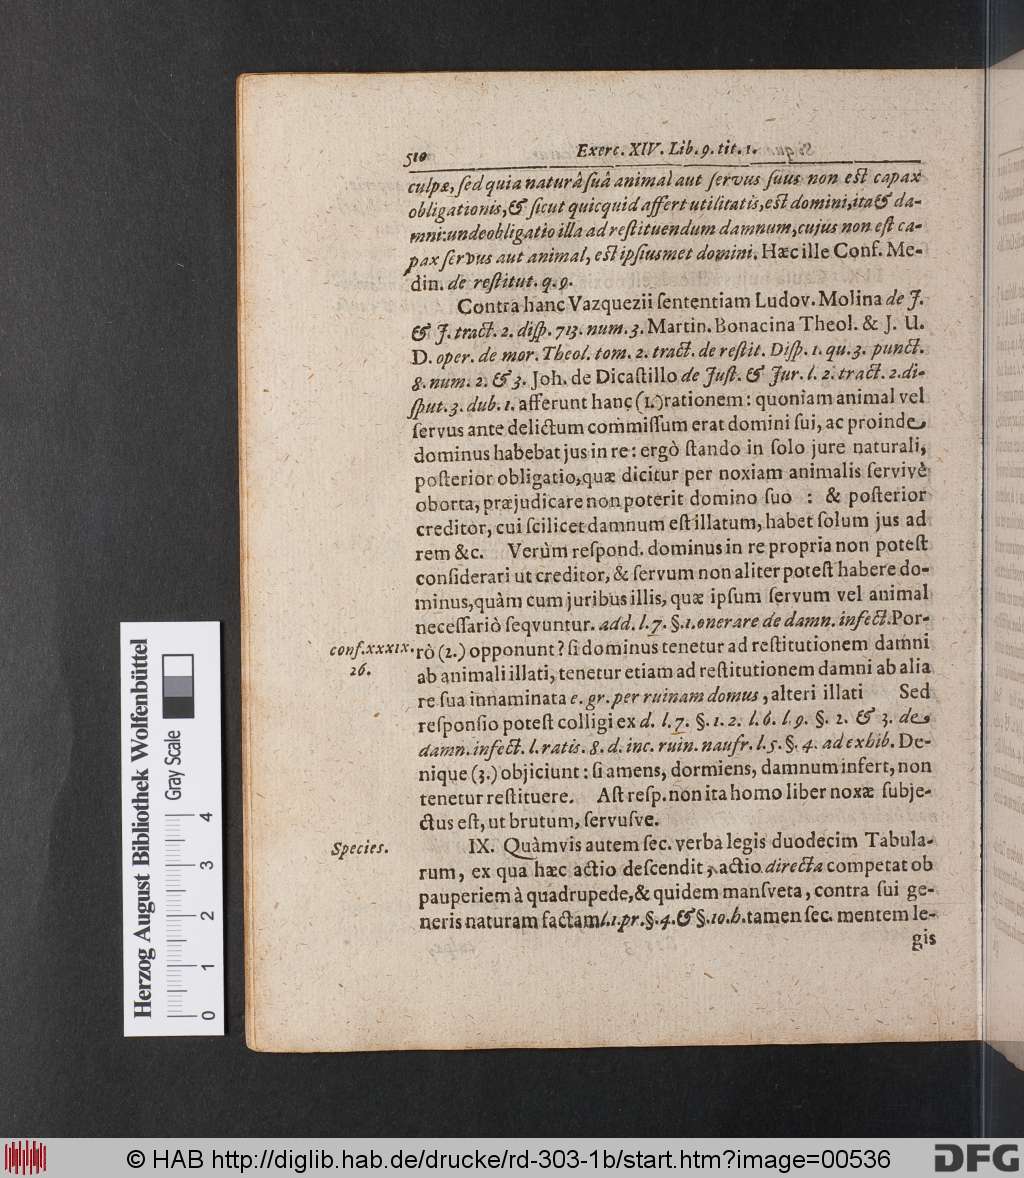 510 Exerc. XIV. Lib. 9. tit. 1.
culpæ, ſed quia naturâ ſuâ animal aut ſervus ſuus non eſt capax
obligationis, & ſicut quicquid affert utilitatis, eſt domini, ita & da-
mni: unde obligatio illa ad reſtituendum damnum, cujus non eſt ca-
pax ſervus aut animal, eſt ipſiusmet domini. Hæc ille Conf. Me-
din. de reſtitut. q. 9.
Contra hanc Vazquezii ſententiam Ludov. Molina de J.
& J. tract. 2. diſp. 713. num. 3. Martin. Bonacina Theol. & J. U.
D. oper. de mor. Theol. tom. 2. tract. de reſtit. Diſp. 1. qu. 3. punct.
8. num. 2. & 3. Joh. de Dicaſtillo de Juſt. & Jur. l. 2. tract. 2. di-
ſput. 3. dub. 1. afferunt hanc (1.) rationem: quoniam animal vel
ſervus ante delictum commiſſum erat domini ſui, ac proinde
dominus habebat jus in re: ergò ſtando in ſolo jure naturali,
poſterior obligatio, quæ dicitur per noxiam animalis ſervivè
oborta, præjudicare non poterit domino ſuo : & poſterior
creditor, cui ſcilicet damnum eſt illatum, habet ſolum jus ad
rem &c. Verùm reſpond. dominus in re propria non poteſt
conſiderari ut creditor, & ſervum non aliter poteſt habere do-
minus, quàm cum juribus illis, quæ ipſum ſervum vel animal
neceſſariò ſeqvuntur. add. l. 7. §. 1. onerare de damn. infect. Por-
conf. XXXIX. 26.
rò (2.) opponunt? ſi dominus tenetur ad reſtitutionem damni
ab animali illati, tenetur etiam ad reſtitutionem damni ab alia
re ſua innaminata e. gr. per ruinam domus, alteri illati Sed
reſponſio poteſt colligi ex d. l. 7. §. 1. 2. l. 6. l. 9. §. 2. & 3. de
damn. infect. l. ratis. 8. d. inc. ruin. naufr. l. 5. §. 4. ad exhib. De-
nique (3.) objiciunt: ſi amens, dormiens, damnum infert, non
tenetur reſtituere. Aſt reſp. non ita homo liber noxæ ſubje-
ctus eſt, ut brutum, ſervuſve.
Species.
IX. Quàmvis autem ſec. verba legis duodecim Tabula-
rum, ex qua hæc actio deſcendit, actio directa competat ob
pauperiem à quadrupede, & quidem manſveta, contra ſui ge-
neris naturam factam l. 1. pr. §. 4. & §. 10. h. tamen ſec. mentem le-
gis
Herzog August Bibliothek Wolfenbüttel
Gray Scale
0 1 2 3 4
© HAB http://diglib.hab.de/drucke/rd-303-1b/start.htm?image=00536
DFG